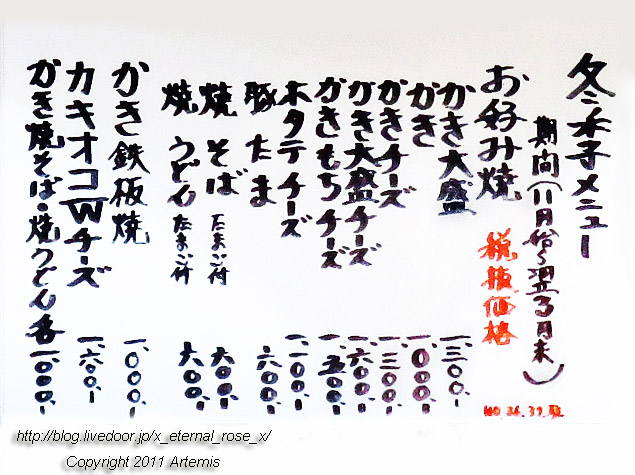 冬季メニュー
期間(11月始〜翌3月末)
お好み焼 税抜価格
かき大盛 一、三〇〇、-
かき 一、〇〇〇、-
かきチーズ 一、三〇〇、-
かき大盛チーズ 一、六〇〇、-
かきもちチーズ 一、五〇〇、-
ホタテチーズ 一、一〇〇、-
豚たま 六〇〇、-
焼そば たまご付 六〇〇、-
焼うどん たまご付 六〇〇、-
かき鉄板焼 一、〇〇〇、-
カキオコWチーズ 一、六〇〇、-
かき焼そば・焼うどん各 一、〇〇〇、-
http://blog.livedoor.jp/x_eternal_rose_x/
Copyright 2011 Artemis